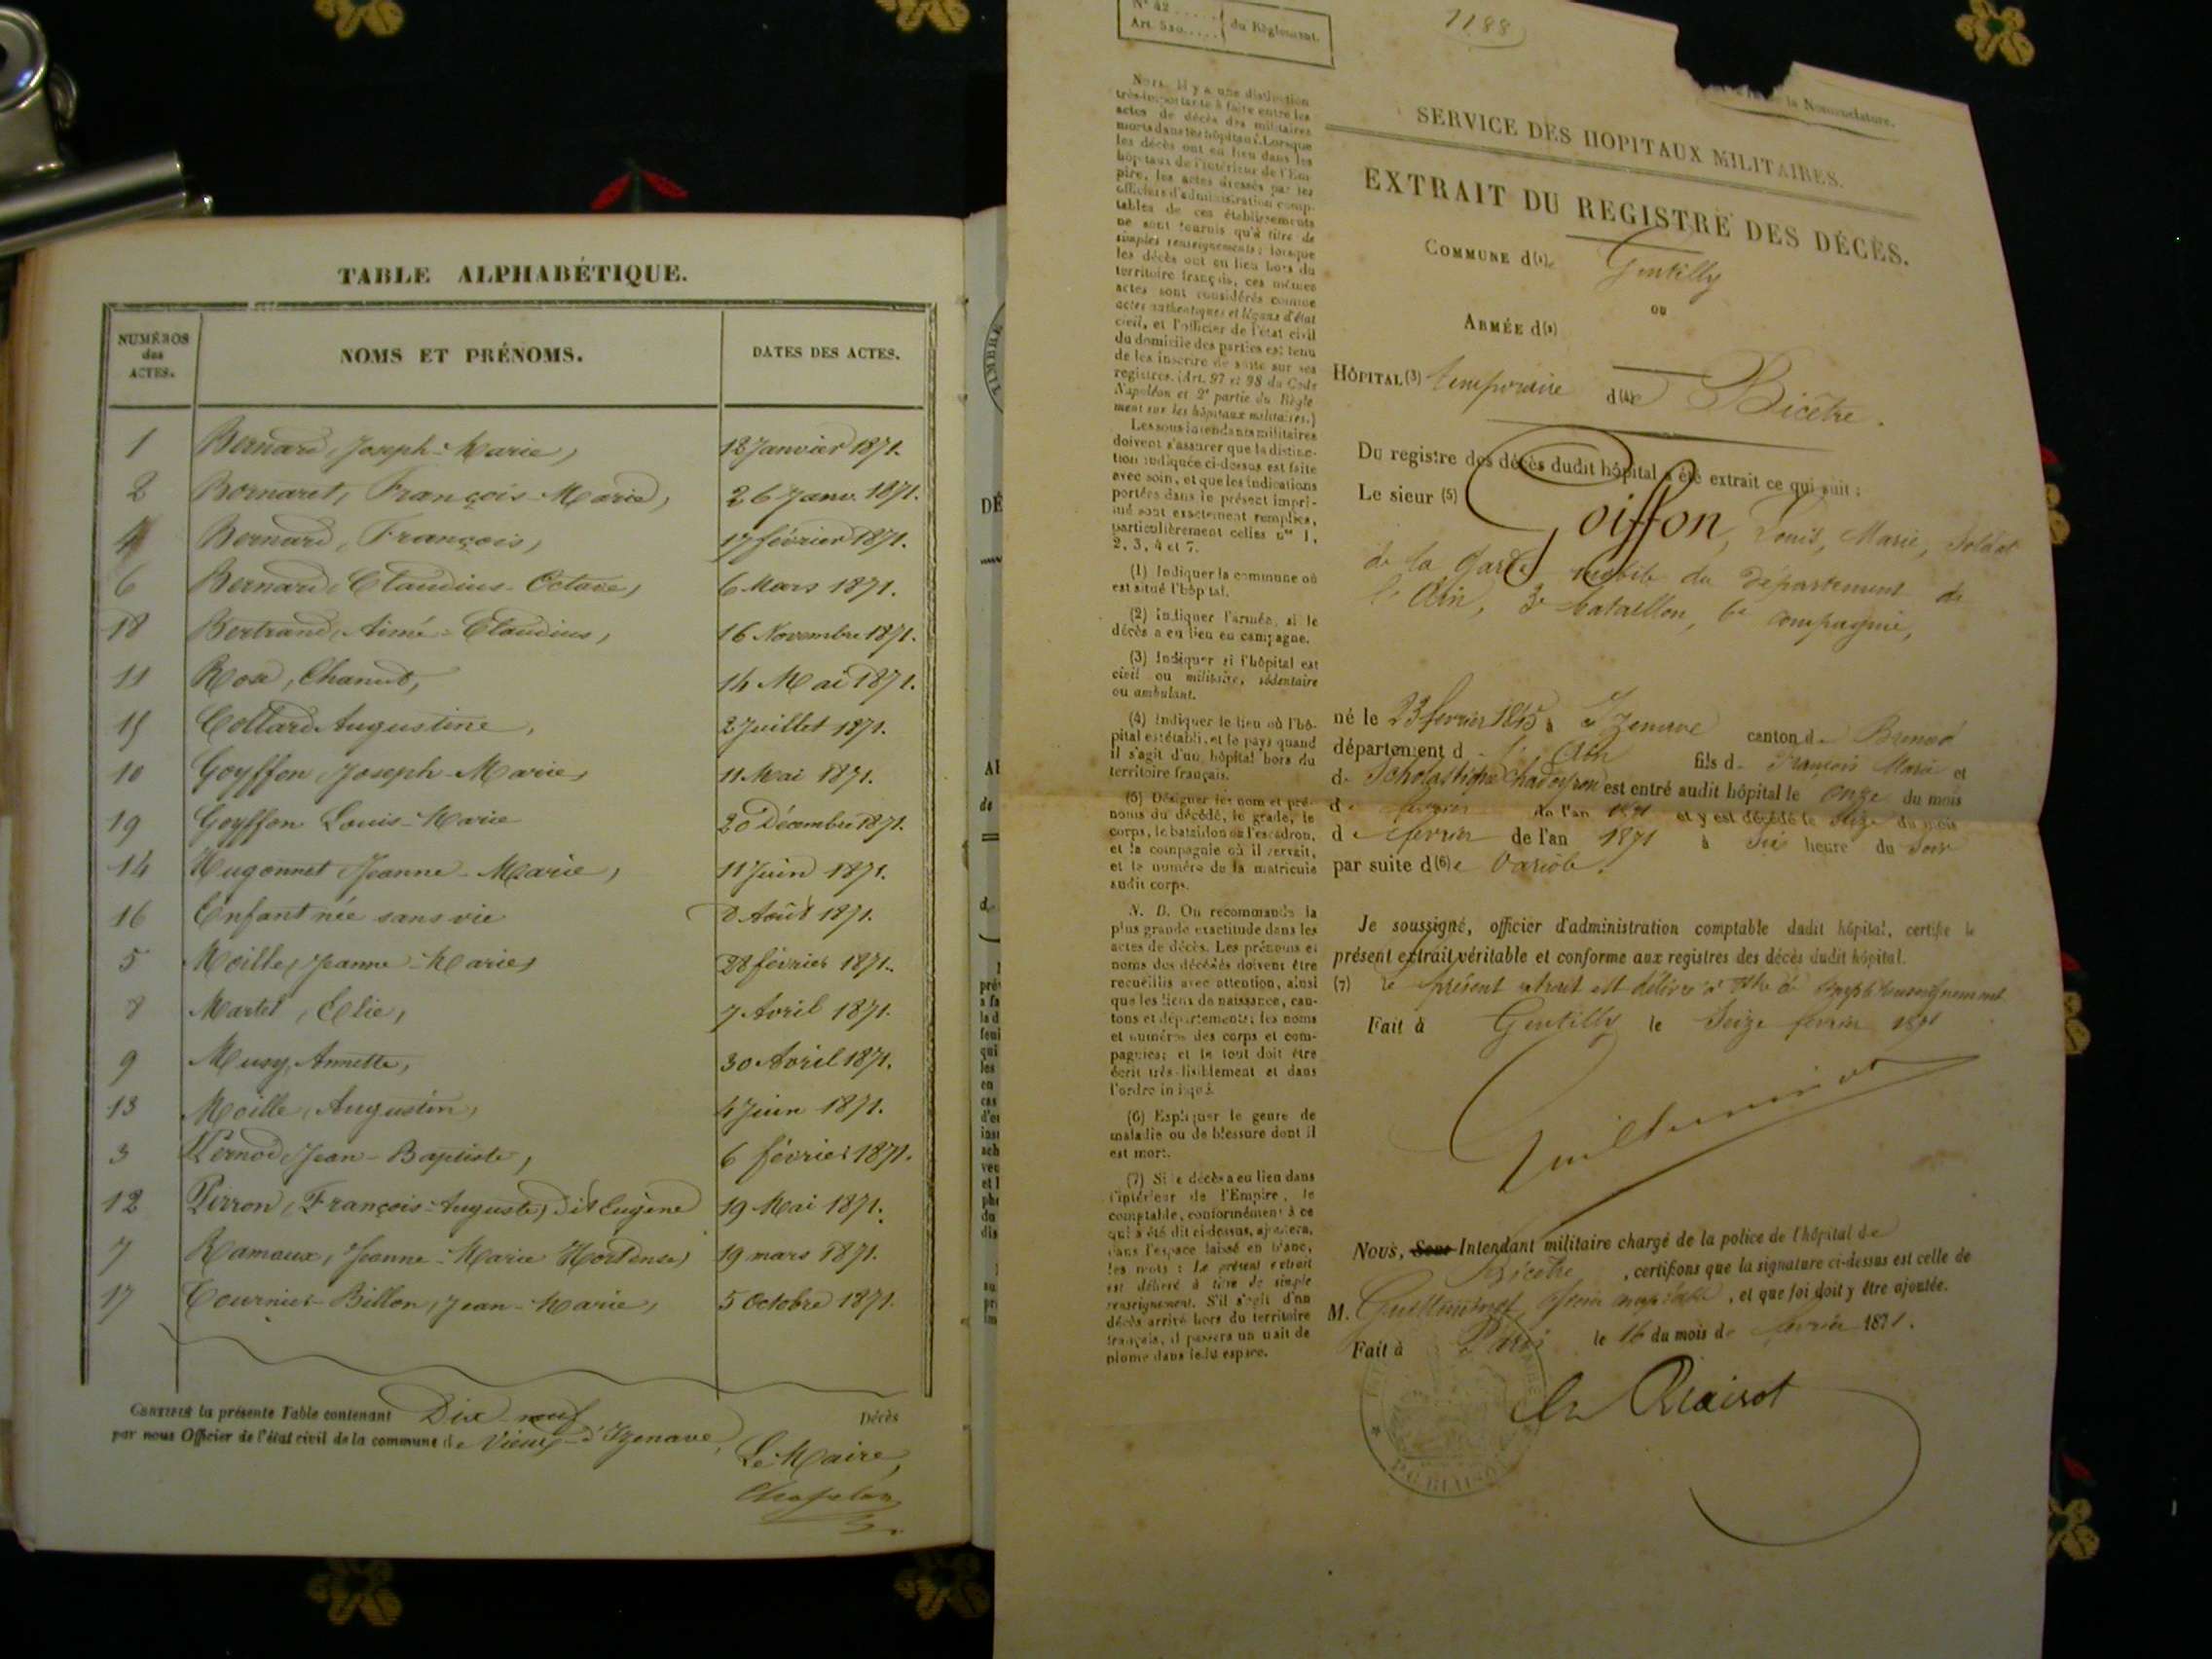 TABLE ALPHABÉTIQUE.
NUMÉROS des ACTES.
NOMS ET PRÉNOMS.
DATES DES ACTES.
1 Bernard, Joseph-Marie, 12 Janvier 1871.
2 Bornaret, François-Marie, 26 Janv. 1871.
4 Bernard, François, 17 février 1871.
6 Bernard, Claudius-Octave, 6 Mars 1871.
18 Bertrand, Aimé-Claudius, 16 Novembre 1871.
11 Rose, Chanut, 14 Mai 1871.
15 Collard Augustine, 2 Juillet 1871.
10 Goyffon, Joseph-Marie, 11 Mai 1871.
19 Goyffon Louis-Marie 20 Décembre 1871.
14 Hugonnet Jeanne-Marie, 11 Juin 1871.
16 Enfant née sans vie 2 Août 1871.
5 Moille, Jeanne-Marie, 28 février 1871.
8 Martel, Elie, 7 Avril 1871.
9 Musy, Annette, 30 Avril 1871.
13 Moille, Augustin, 4 Juin 1871.
3 Pernod, Jean-Baptiste, 6 février 1871.
12 Perron, François-Auguste, dit Eugène 19 Mai 1871.
7 Ramaux, Jeanne-Marie Hortense, 19 mars 1871.
17 Tournier-Billon, Jean-Marie, 5 Octobre 1871.
CERTIFIÉ la présente Table contenant Dix-neuf Décès
par nous Officier de l'état civil de la commune de Vieux-d'Izenave,
Le Maire,
TIMBRE
N° 42
Art. 520 du Règlement.
1188
la Nomenclature.
SERVICE DES HOPITAUX MILITAIRES.
EXTRAIT DU REGISTRE DES DÉCÈS.
COMMUNE d(1)e Gentilly
ou
ARMÉE d(2)
HÔPITAL (3) temporaire d(4)e Bicêtre.
Du registre des décès dudit hôpital a été extrait ce qui suit :
Le sieur (5) Goiffon, Louis, Marie, soldat
de la Garde mobile du département de
l'Ain, 3e bataillon, 6e compagnie,
né le 23 fevrier 1845 à Izenave canton d. Brenod
département d l'Ain fils d. François Marie et
d. Scholastique est entré audit hôpital le onze du mois
de fevrier de l'an 1871 et y est décédé le seize du mois
de fevrier de l'an 1871 à Six heure du Soir
par suite d(6)e Variole.
Je soussigné, officier d'administration comptable dudit hôpital, certifie le
présent extrait véritable et conforme aux registres des décès dudit hôpital.
(7) Le présent extrait est délivré à titre de simple renseignement
Fait à Gentilly le Seize fevrier 1871
Nous, Sous-Intendant militaire chargé de la police de l'hôpital de
Bicêtre, certifions que la signature ci-dessus est celle de
M. Guilleminot, et que foi doit y être ajoutée.
Fait à Paris le 16 du mois de fevrier 1871.
NOTA. Il y a une distinction
très-importante à faire entre les
actes de décès des militaires
morts dans les hôpitaux. Lorsque
les décès ont eu lieu dans les
hôpitaux de l'intérieur de l'Em-
pire, les actes dressés par les
officiers d'administration comp-
tables de ces établissements
ne sont fournis qu'à titre de
simples renseignements; lorsque
les décès ont eu lieu hors du
territoire français, ces mêmes
actes sont considérés comme
actes authentiques et légaux d'état
civil, et l'officier de l'état civil
du domicile des parties est tenu
de les inscrire de suite sur ses
registres. (Art. 97 et 98 du Code
Napoléon et 2e partie du Règle-
ment sur les hôpitaux militaires.)
Les sous-intendants militaires
doivent s'assurer que la distinc-
tion indiquée ci-dessus est faite
avec soin, et que les indications
portées dans le présent impri-
mé sont exactement remplies,
particulièrement celles nos 1,
2, 3, 4 et 7.
(1) Indiquer la commune où
est situé l'hôpital.
(2) Indiquer l'armée, si le
décès a eu lieu en campagne.
(3) Indiquer si l'hôpital est
civil ou militaire, sédentaire
ou ambulant.
(4) Indiquer le lieu où l'hô-
pital est établi, et le pays quand
il s'agit d'un hôpital hors du
territoire français.
(5) Désigner les nom et pré-
noms du décédé, le grade, le
corps, le bataillon ou l'escadron,
et la compagnie où il servait,
et le numéro de la matricule
audit corps.
N. B. On recommande la
plus grande exactitude dans les
actes de décès. Les prénoms et
noms des décédés doivent être
recueillis avec attention, ainsi
que les lieux de naissance, can-
tons et départements; les noms
et numéros des corps et com-
pagnies; et le tout doit être
écrit très-lisiblement et dans
l'ordre indiqué.
(6) Expliquer le genre de
maladie ou de blessure dont il
est mort.
(7) Si le décès a eu lieu dans
l'intérieur de l'Empire, le
comptable, conformément à ce
qui a été dit ci-dessus, ajoutera,
dans l'espace laissé en blanc,
les mots : Le présent extrait
est délivré à titre de simple
renseignement. S'il s'agit d'un
décès arrivé hors du territoire
français, il passera un trait de
plume dans ledit espace.